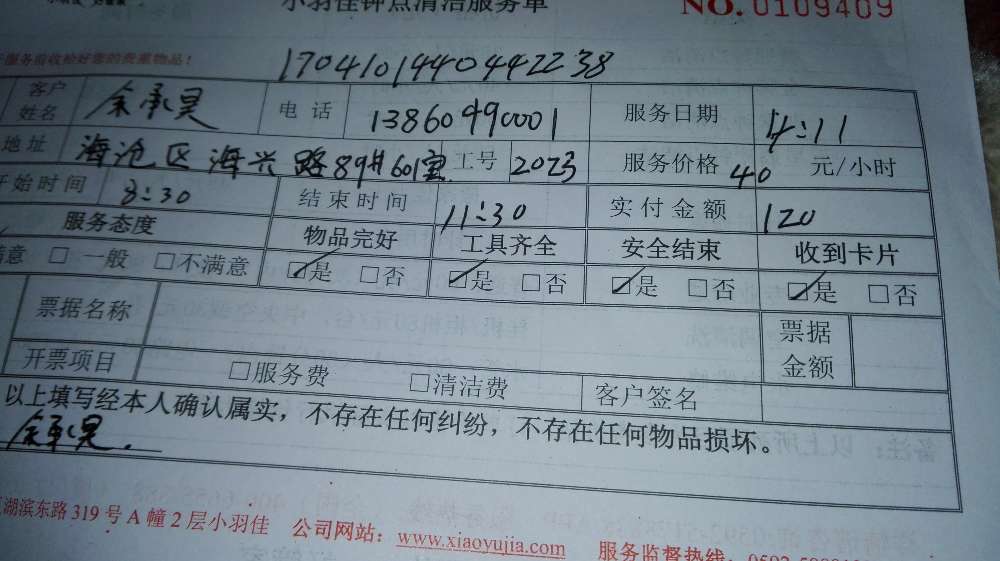 小羽佳钟点清洁服务单 NO.0109409
服务前收检好您的贵重物品!
1704101440442238
客户姓名 余承昊 电话 13860490001 服务日期 4:11
地址 海沧区海兴路89# 601室 工号 2023 服务价格 40 元/小时
开始时间 8:30 结束时间 11:30 实付金额 120
服务态度 物品完好 工具齐全 安全结束 收到卡片
意 □ 一般 □不满意 ☑是 □否 ☑是 □否 ☑是 □否 ☑是 □否
票据名称 票据金额
开票项目 □服务费 □清洁费 客户签名
以上填写经本人确认属实，不存在任何纠纷，不存在任何物品损坏。
余承昊.
湖滨东路 319 号 A 幢 2 层小羽佳 公司网站：www.xiaoyujia.com 服务监督热线：